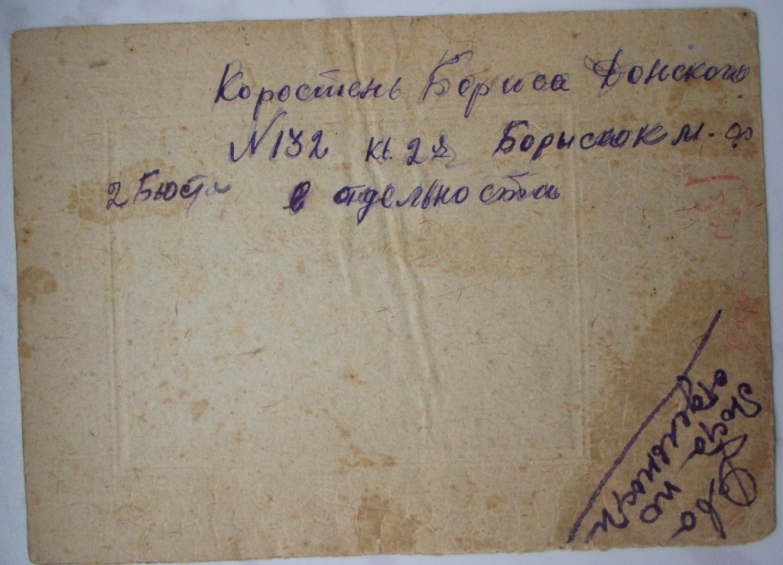 Коростень Бориса Донского
№132 кв. 22 Борисюк М. Ф
2 Бюста в отдельности
Два
по
отдельности